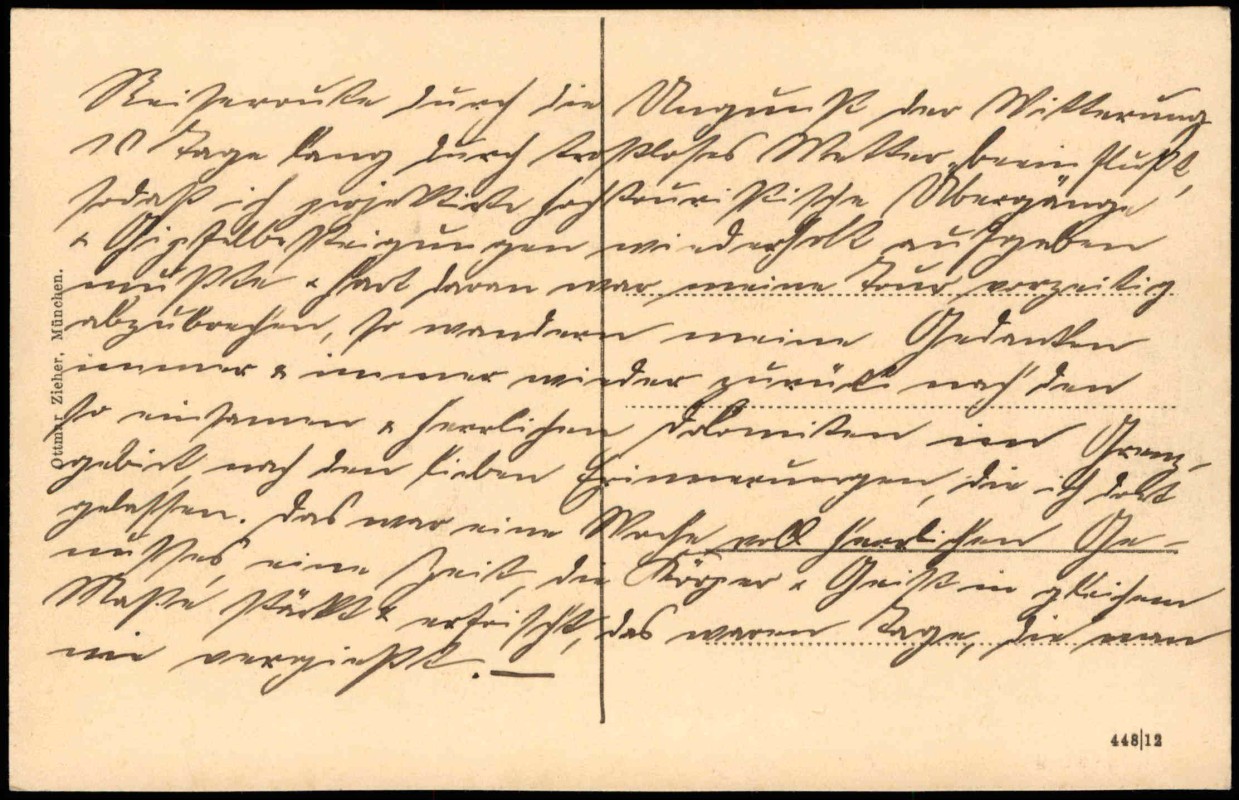 Reiseroute durch die Ungunst der Witterung
10 Tage lang durch trostloses Wetter beeinflußt,
sodaß ich projektirte hochtouristische Übergänge
& Gipfelbesteigungen wiederholt aufgeben
mußte & hart daran war meine Tour vorzeitig
abzubrechen, so wandern meine Gedanken
immer & immer wieder zurück nach den
so einsamen & herrlichen Dolomiten im Grenz-
gebiet, nach den lieben Erinnerungen, die ich dort
gelassen. Das war eine Woche voll herrlichen Ge-
nusses, eine Zeit, die Körper & Geist in gleichem
Maße stärkt & erfrischt, das waren Tage, die man
nie vergießt. —
Ottmar Zieher, München.
448|12